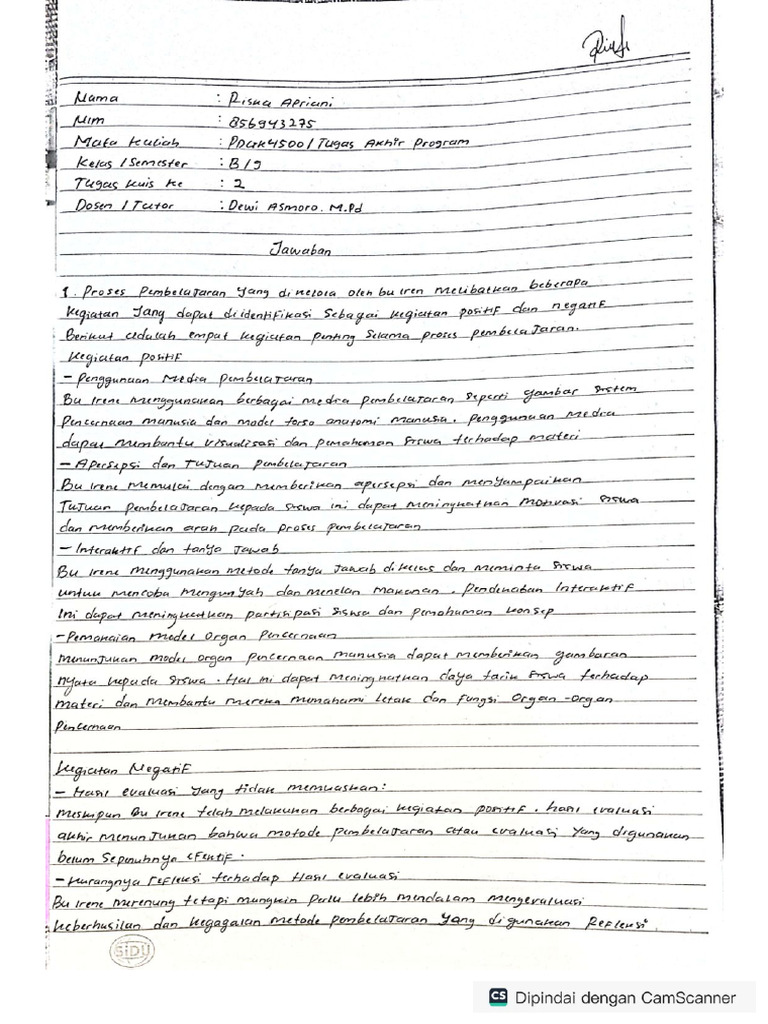 Nama : Riska Apriani
Nim : 856943275
Mata Kuliah : PDGK4500 / Tugas Akhir Program
Kelas / Semester : B/9
Tugas Kuis Ke : 2
Dosen / Tutor : Dewi Asmoro. M.Pd
Jawaban
1. Proses Pembelajaran yang dikelola oleh bu Iren melibatkan beberapa
kegiatan yang dapat diidentifikasi sebagai kegiatan positif dan negatif
Berikut adalah empat kegiatan penting selama proses pembelajaran.
Kegiatan positif
- Penggunaan Media Pembelajaran
Bu Irene menggunakan berbagai media pembelajaran seperti gambar sistem
pencernaan manusia dan model torso anatomi manusia. Penggunaan media
dapat membantu visualisasi dan pemahaman siswa terhadap materi
- Apersepsi dan Tujuan pembelajaran
Bu Irene memulai dengan memberikan apersepsi dan menyampaikan
Tujuan pembelajaran kepada siswa ini dapat meningkatkan motivasi siswa
dan memberikan arah pada proses pembelajaran
- Interaktif dan tanya Jawab
Bu Irene menggunakan metode tanya Jawab di kelas dan meminta siswa
untuk mencoba mengunyah dan menelan makanan. Pendekatan Interaktif
Ini dapat meningkatkan partisipasi siswa dan pemahaman konsep
- Pemakaian model Organ Pencernaan
menunjukan model organ pencernaan manusia dapat memberikan gambaran
nyata kepada siswa. Hal ini dapat meningkatkan daya tarik siswa terhadap
materi dan membantu mereka memahami letak dan fungsi Organ-organ
Pencernaan
Kegiatan Negatif
- Hasil evaluasi yang tidak memuaskan:
meskipun Bu Irene telah melakukan berbagai kegiatan positif. hasil evaluasi
akhir menunjukan bahwa metode pembelajaran atau evaluasi yang digunakan
belum sepenuhnya efektif.
- Kurangnya refleksi terhadap Hasil evaluasi
Bu Irene merenung tetapi mungkin perlu lebih mendalam mengevaluasi
keberhasilan dan kegagalan metode pembelajaran yang digunakan Refleksi.
SIDU
CS Dipindai dengan CamScanner